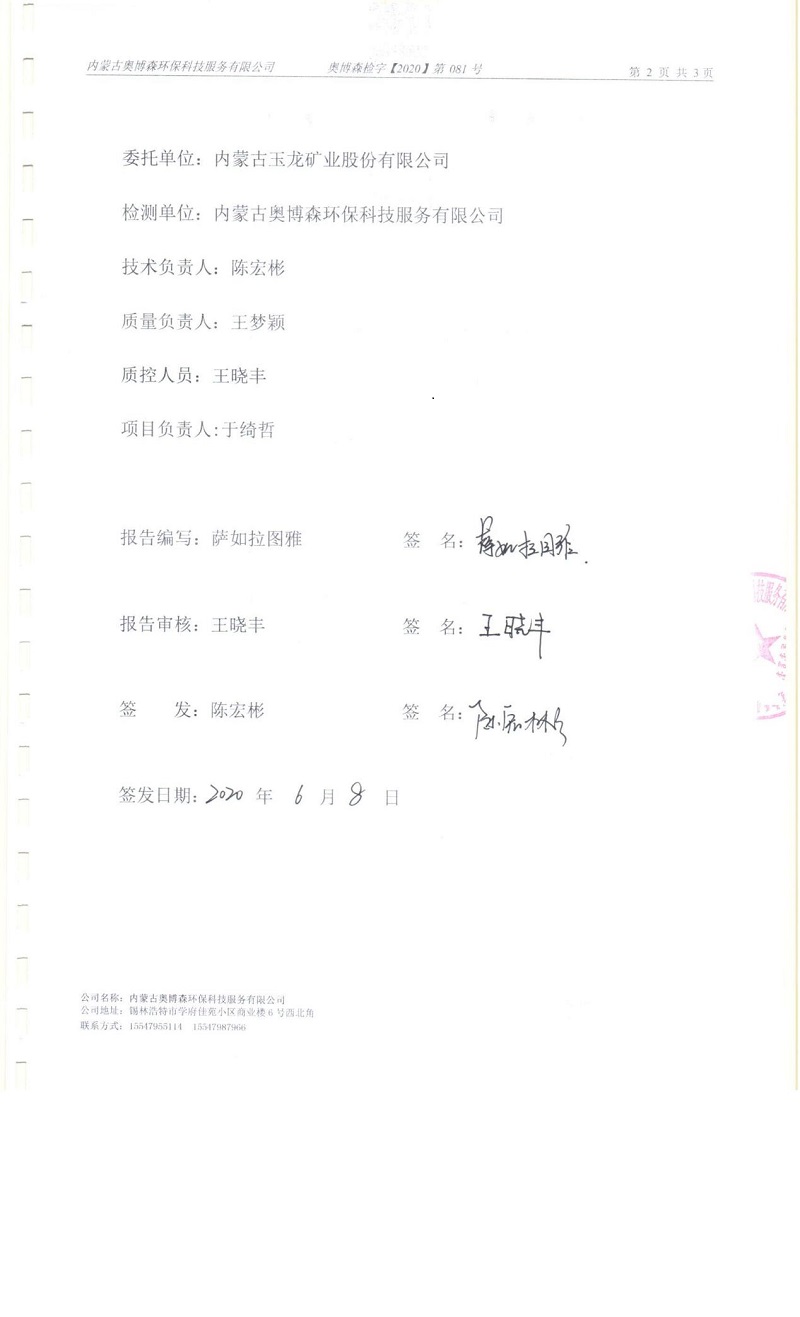 内蒙古奥博森环保科技服务有限公司 奥博森检字【2020】第 081 号 第 2 页 共 3 页
委托单位：内蒙古玉龙矿业股份有限公司
检测单位：内蒙古奥博森环保科技服务有限公司
技术负责人：陈宏彬
质量负责人：王梦颖
质控人员：王晓丰
项目负责人:于绮哲
报告编写：萨如拉图雅 签 名：萨如拉图雅
报告审核：王晓丰 签 名：王晓丰
签 发：陈宏彬 签 名：陈宏彬
签发日期：2020 年 6 月 8 日
技服务有
公司名称：内蒙古奥博森环保科技服务有限公司
公司地址：锡林浩特市学府佳苑小区商业楼 6 号西北角
联系方式：15547955114 15547987966